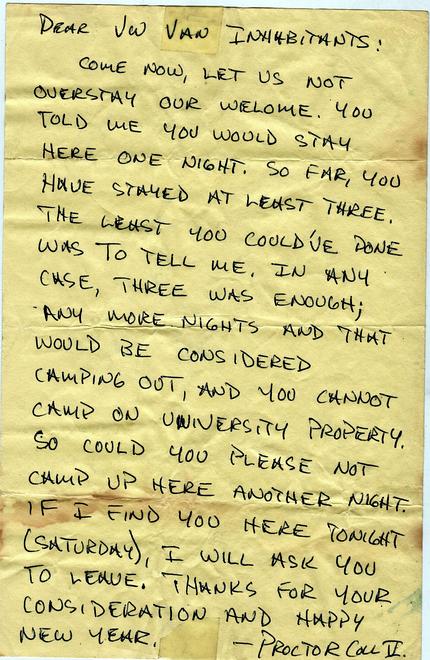 DEAR VW VAN INHABITANTS:
COME NOW, LET US NOT
OVERSTAY OUR WELOME. YOU
TOLD ME YOU WOULD STAY
HERE ONE NIGHT. SO FAR, YOU
HAVE STAYED AT LEAST THREE.
THE LEAST YOU COULD'VE DONE
WAS TO TELL ME. IN ANY
CASE, THREE WAS ENOUGH;
ANY MORE NIGHTS AND THAT
WOULD BE CONSIDERED
CAMPING OUT, AND YOU CANNOT
CAMP ON UNIVERSITY PROPERTY.
SO COULD YOU PLEASE NOT
CAMP UP HERE ANOTHER NIGHT.
IF I FIND YOU HERE TONIGHT
(SATURDAY), I WILL ASK YOU
TO LEAVE. THANKS FOR YOUR
CONSIDERATION AND HAPPY
NEW YEAR. — PROCTOR